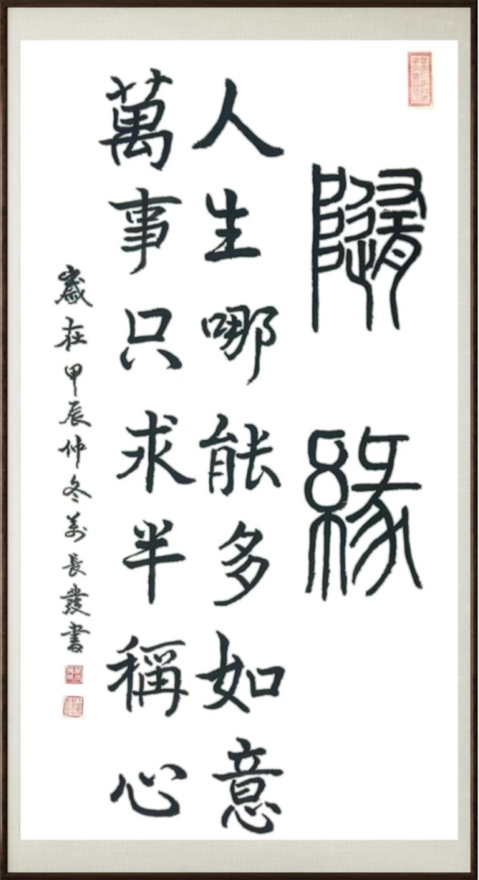 隨緣
人生哪能多如意
萬事只求半稱心
歲在甲辰仲冬姜長發書